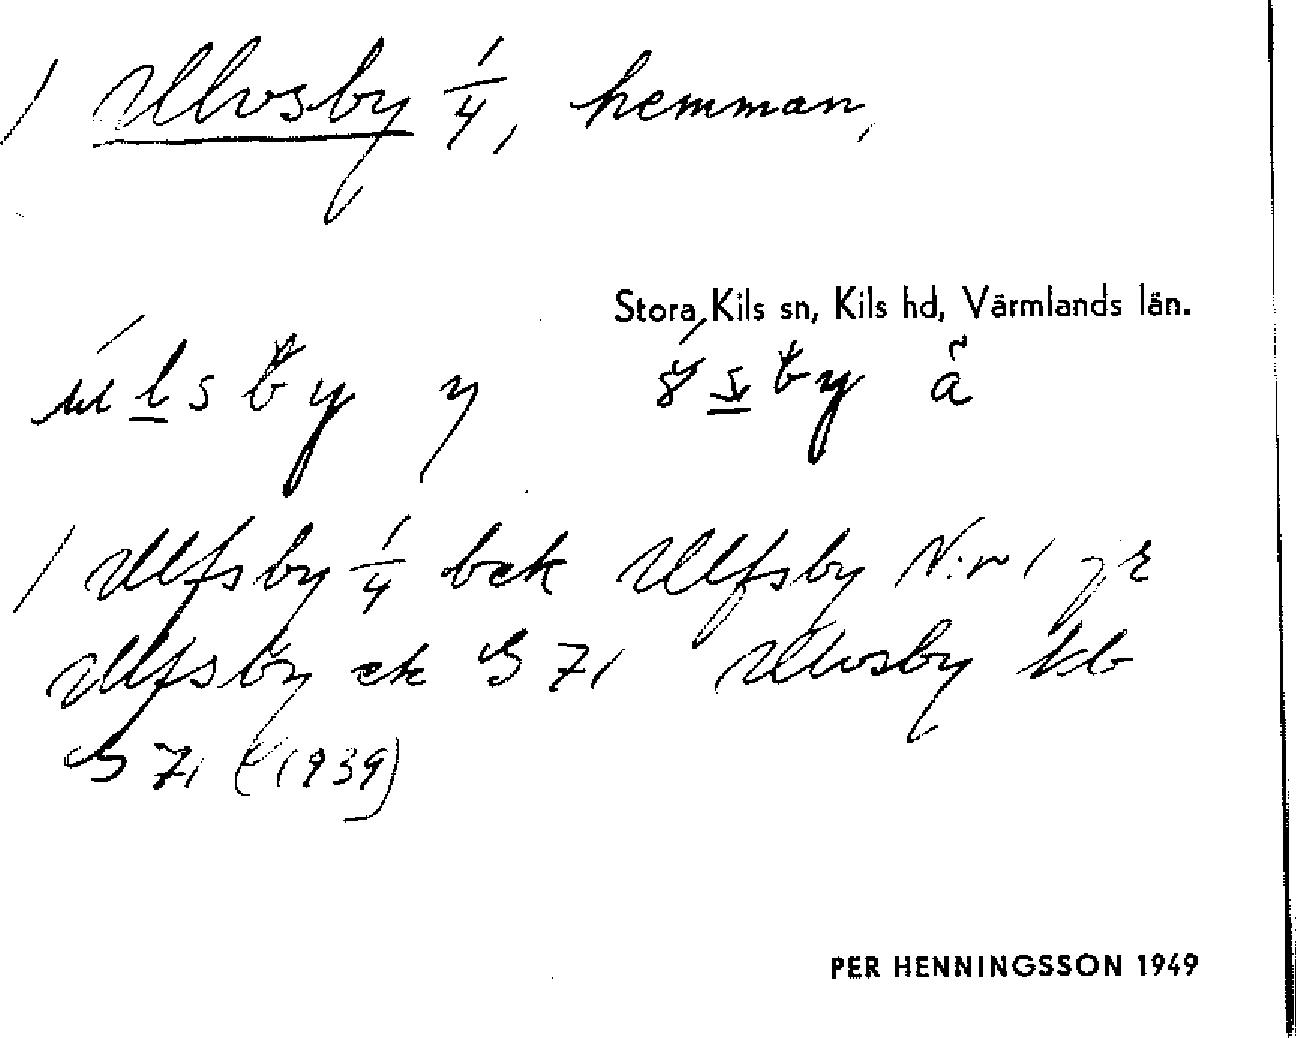 / Ulvsby 1/4, hemman,
Stora Kils sn, Kils hd, Värmlands län.
úlsby y sby å
/ Ulfsby 1/4 bek Ulfsby N:r 1 jr
Ulfsby ek S 71 Ulvsby kb
S 71 (1939)
PER HENNINGSSON 1949